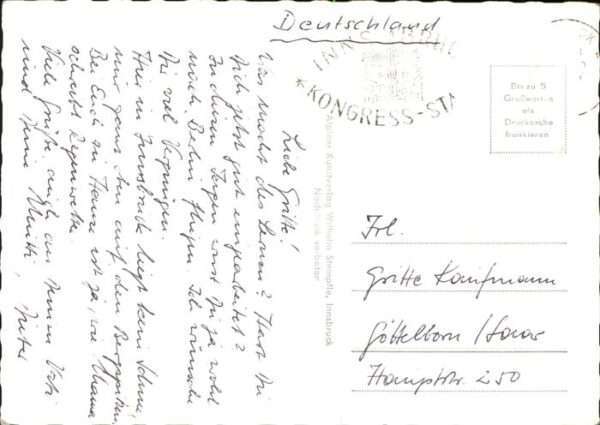 Deutschland
INNSBRUCK
*KONGRESS-STA
Bis zu 5
Grußworten
als
Drucksache
frankieren
Alpiner Kunstverlag Wilhelm Stempfle, Innsbruck
Nachdruck verboten
Liebe Gritte!
Was macht das Lernen? Hast Du
Dich jetzt gut eingearbeitet?
In diesen Tagen wirst Du ja wohl
nach Berlin fliegen. Ich wünsche
Dir viel Vergnügen.
Hier in Innsbruck liegt kein Schnee,
nur ganz oben auf den Berggipfeln.
Bei Euch zu Hause ist ja, wie Mama
schreibt Regenwetter.
Viele Grüße, auch an Deinen Vati
und Deine Mutti, Dieter
Frl.
Gritte Kaufmann
Göttelborn / Saar
Hauptstr. 250